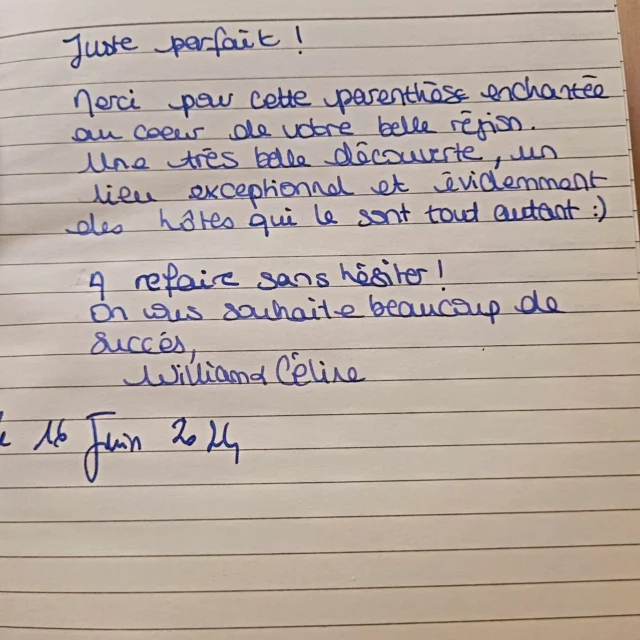 Juste parfait !
Merci pour cette parenthèse enchantée
au coeur de votre belle région.
Une très belle découverte, un
lieu exceptionnel et évidemment
des hôtes qui le sont tout autant :)
A refaire sans hésiter !
On vous souhaite beaucoup de
succès,
Céline
16 Juin 2024